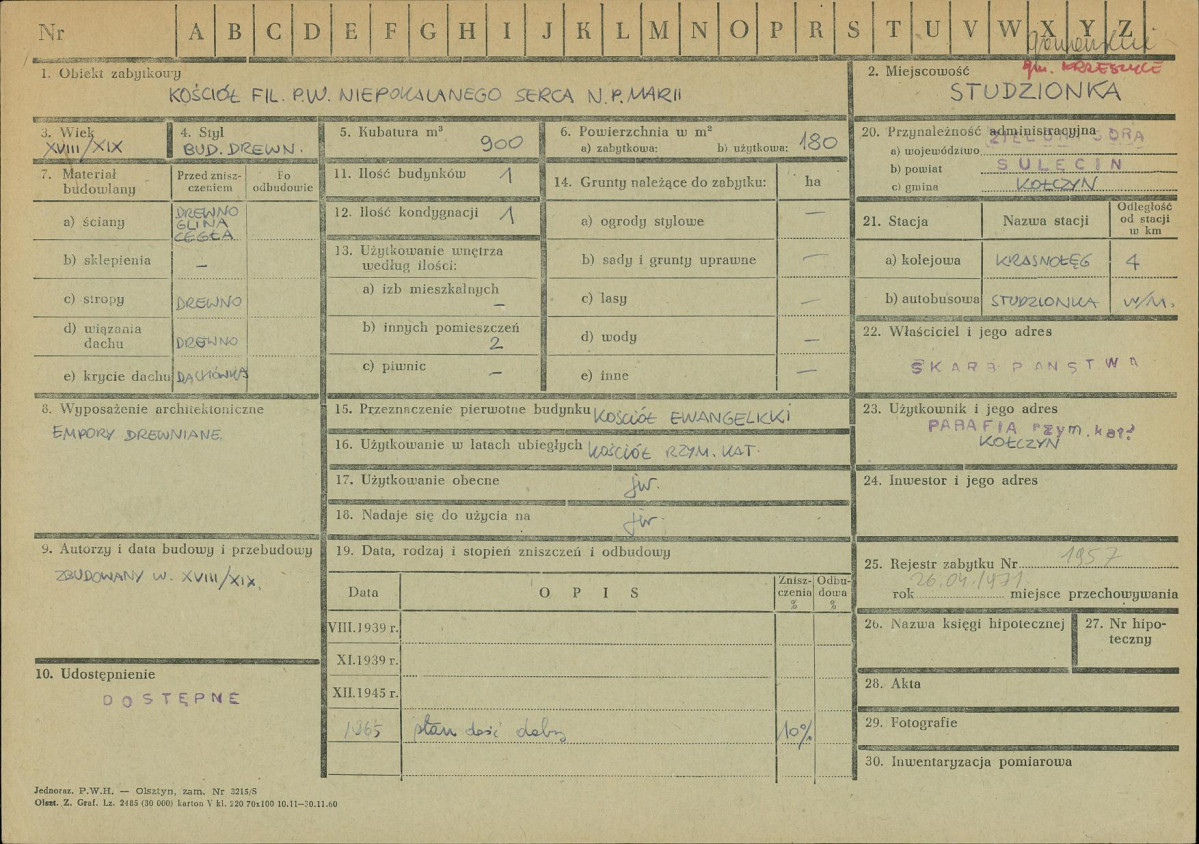 Nr A B C D E F G H I J K L M N O P R S T U V W X Y Z
gm. KRZESZYCE
1. Obiekt zabytkowy
KOŚCIÓŁ FIL. P.W. NIEPOKALANEGO SERCA N.P. MARII
2. Miejscowość
STUDZIONKA
3. Wiek
XVIII/XIX
4. Styl
BUD. DREWN.
5. Kubatura m³
900
6. Powierzchnia w m²
a) zabytkowa: b) użytkowa: 180
7. Materiał budowlany
Przed zniszczeniem
Po odbudowie
a) ściany
DREWNO
GLINA
CEGŁA
b) sklepienia —
c) stropy DREWNO
d) wiązania dachu DREWNO
e) krycie dachu DACHÓWKA
8. Wyposażenie architektoniczne
EMPORY DREWNIANE.
9. Autorzy i data budowy i przebudowy
ZBUDOWANY W. XVIII/XIX.
10. Udostępnienie
DOSTĘPNE
11. Ilość budynków 1
12. Ilość kondygnacji 1
13. Użytkowanie wnętrza
według ilości:
a) izb mieszkalnych —
b) innych pomieszczeń 2
c) piwnic —
14. Grunty należące do zabytku: ha
a) ogrody stylowe —
b) sady i grunty uprawne —
c) lasy —
d) wody —
e) inne —
15. Przeznaczenie pierwotne budynku KOŚCIÓŁ EWANGELICKI
16. Użytkowanie w latach ubiegłych KOŚCIÓŁ RZYM. KAT.
17. Użytkowanie obecne jw.
18. Nadaje się do użycia na jw.
19. Data, rodzaj i stopień zniszczeń i odbudowy
Data O P I S Zniszczenia % Odbudowa %
VIII.1939 r.
XI.1939 r.
XII.1945 r.
1965 stan dość dobry 10%
20. Przynależność administracyjna
a) województwo ZIELONA GÓRA
b) powiat SULĘCIN
c) gmina KOŁCZYN
21. Stacja Nazwa stacji Odległość od stacji w km
a) kolejowa KRASNOŁĘG 4
b) autobusowa STUDZIONKA W/M.
22. Właściciel i jego adres
SKARB PAŃSTWA
23. Użytkownik i jego adres
PARAFIA rzym. kat.
KOŁCZYN
24. Inwestor i jego adres
25. Rejestr zabytku Nr 1957
26.04.1971
rok miejsce przechowywania
26. Nazwa księgi hipotecznej
27. Nr hipoteczny
28. Akta
29. Fotografie
30. Inwentaryzacja pomiarowa
Jednoraz. P.W.H. — Olsztyn, zam. Nr 3215/S
Olszt. Z. Graf. Lz. 2485 (30 000) karton V kl. 220 70x100 10.11—30.11.60